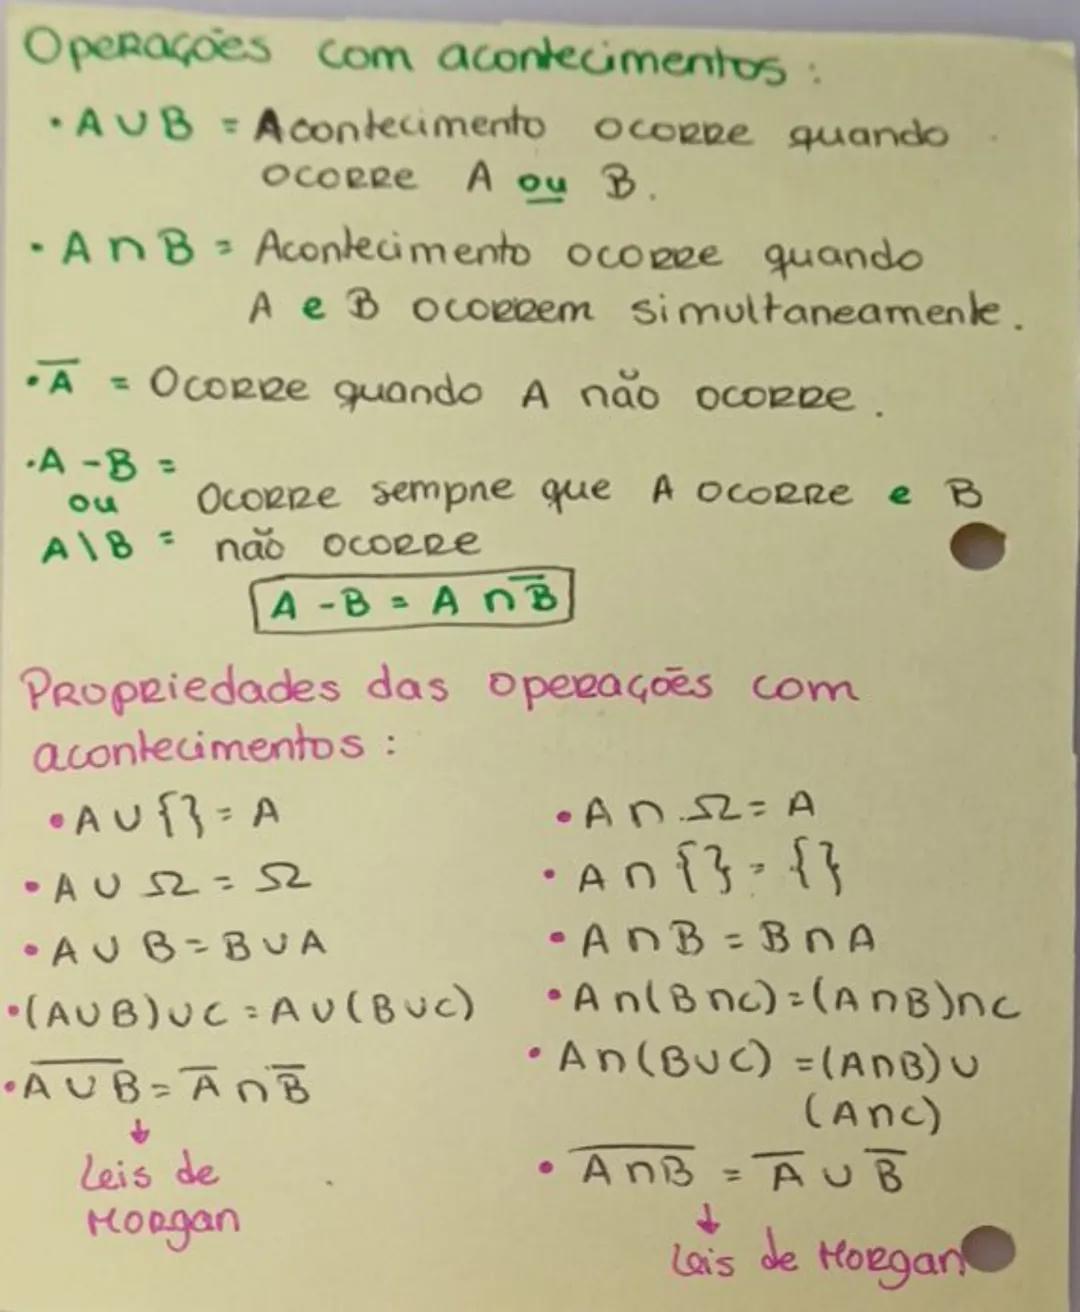 Operações com acontecimentos:
• A ∪ B = Acontecimento ocorre quando
ocorre A ou B.
• A ∩ B = Acontecimento ocorre quando
A e B ocorrem simultaneamente.
• A̅ = Ocorre quando A não ocorre.
• A - B =
ou
Ocorre sempre que A ocorre e B
A \ B = não ocorre
A - B = A ∩ B̅
Propriedades das operações com
acontecimentos:
• A ∪ {} = A
• A ∪ Ω = Ω
• A ∪ B = B ∪ A
• (A ∪ B) ∪ C = A ∪ (B ∪ C)
• A̅ ̅∪̅ ̅B̅ = A̅ ∩ B̅
↓
Leis de
Morgan
• A ∩ Ω = A
• A ∩ {} = {}
• A ∩ B = B ∩ A
• A ∩ (B ∩ C) = (A ∩ B) ∩ C
• A ∩ (B ∪ C) = (A ∩ B) ∪
(A ∩ C)
• A̅ ̅∩̅ ̅B̅ = A̅ ∪ B̅
↓
Leis de Morgan